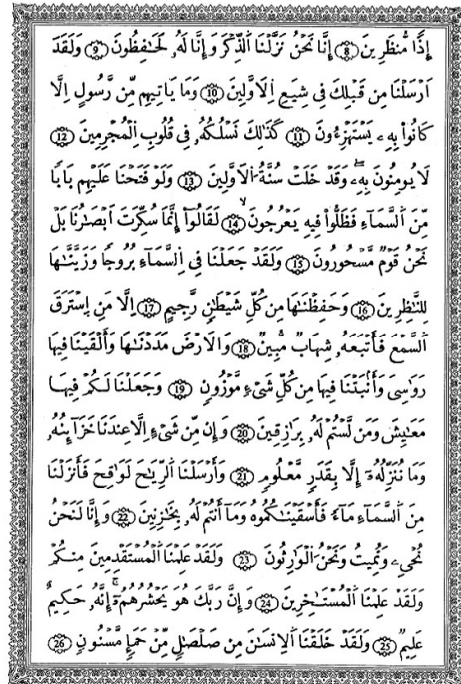 إِذٗا مُّنظَرِينَ 8 إِنَّا نَحۡنُ نَزَّلۡنَا اَ۬لذِّكۡرَ وَإِنَّا لَهُۥ لَحَٰفِظُونَ 9 وَلَقَدۡ
اَرۡسَلۡنَا مِن قَبۡلِكَ فِي شِيَعِ اِ۬لَاوَّلِينَ 10 وَمَا يَاتِيهِم مِّن رَّسُولٍ اِلَّا
كَانُواْ بِهِۦ يَسۡتَهۡزِءُونَ 11 كَذَٰلِكَ نَسۡلُكُهُۥ فِي قُلُوبِ اِ۬لۡمُجۡرِمِينَ 12
لَا يُومِنُونَ بِهِۦ وَقَدۡ خَلَتۡ سُنَّةُ اُ۬لَاوَّلِينَ 13 وَلَوۡ فَتَحۡنَا عَلَيۡهِم بَابٗا
مِّنَ اَ۬لسَّمَآءِ فَظَلُّواْ فِيهِ يَعۡرُجُونَ 14 لَقَالُوٓاْ إِنَّمَا سُكِّرَتَ اَبۡصَٰرُنَا بَلۡ
نَحۡنُ قَوۡمٞ مَّسۡحُورُونَ 15 وَلَقَدۡ جَعَلۡنَا فِي اِ۬لسَّمَآءِ بُرُوجٗا وَزَيَّنَّٰهَا
لِلنَّٰظِرِينَ 16 وَحَفِظۡنَٰهَا مِن كُلِّ شَيۡطَٰنٖ رَّجِيمٍ 17 اِلَّا مَنِ اِ۪سۡتَرَقَ
اَ۬لسَّمۡعَ فَأَتۡبَعَهُۥ شِهَابٞ مُّبِينٞ 18 وَالَارۡضَ مَدَدۡنَٰهَا وَأَلۡقَيۡنَا فِيهَا
رَوَٰسِيَ وَأَنۢبَتۡنَا فِيهَا مِن كُلِّ شَيۡءٖ مَّوۡزُونٖ 19 وَجَعَلۡنَا لَكُمۡ فِيهَا
مَعَٰيِشَ وَمَن لَّسۡتُمۡ لَهُۥ بِرَٰزِقِينَ 20 وَإِن مِّن شَيۡءٍ اِلَّا عِندَنَا خَزَآئِنُهُۥ
وَمَا نُنَزِّلُهُۥٓ إِلَّا بِقَدَرٖ مَّعۡلُومٖ 21 وَأَرۡسَلۡنَا اَ۬لرِّيَٰحَ لَوَٰقِحَ فَأَنزَلۡنَا
مِنَ اَ۬لسَّمَآءِ مَآءٗ فَأَسۡقَيۡنَٰكُمُوهُ وَمَآ أَنتُمۡ لَهُۥ بِخَٰزِنِينَ 22 وَإِنَّا لَنَحۡنُ
نُحۡيِۦ وَنُمِيتُ وَنَحۡنُ اُ۬لۡوَٰرِثُونَ 23 وَلَقَدۡ عَلِمۡنَا اَ۬لۡمُسۡتَقۡدِمِينَ مِنكُمۡ
وَلَقَدۡ عَلِمۡنَا اَ۬لۡمُسۡتَٰخِرِينَ 24 وَإِنَّ رَبَّكَ هُوَ يَحۡشُرُهُمُۥٓ إِنَّهُۥ حَكِيمٌ
عَلِيمٞ 25 وَلَقَدۡ خَلَقۡنَا اَ۬لِانسَٰنَ مِن صَلۡصَٰلٖ مِّنۡ حَمَإٖ مَّسۡنُونٖ 26